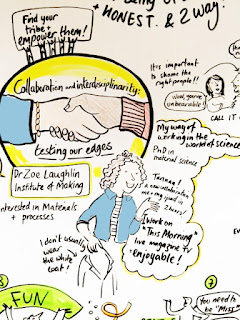 Being Op
+ HONEST. & 2 way!
Find your
tribe +
empower them!
It is important
to shame the
right people!!
Wow, you're
unbearable!
CALL IT
Collaboration and interdisciplinarity:
testing our edges
My way of
working in the
world of science
PhD in
material science
Dr Zoe Laughlin
Institute of Making
interested in Materials
+ processes
I work on
"This Morning"
live magazine TV
"enjoyable!"
I don't usually
wear
the white
coat!
FUN
7
You need to
be "Miss